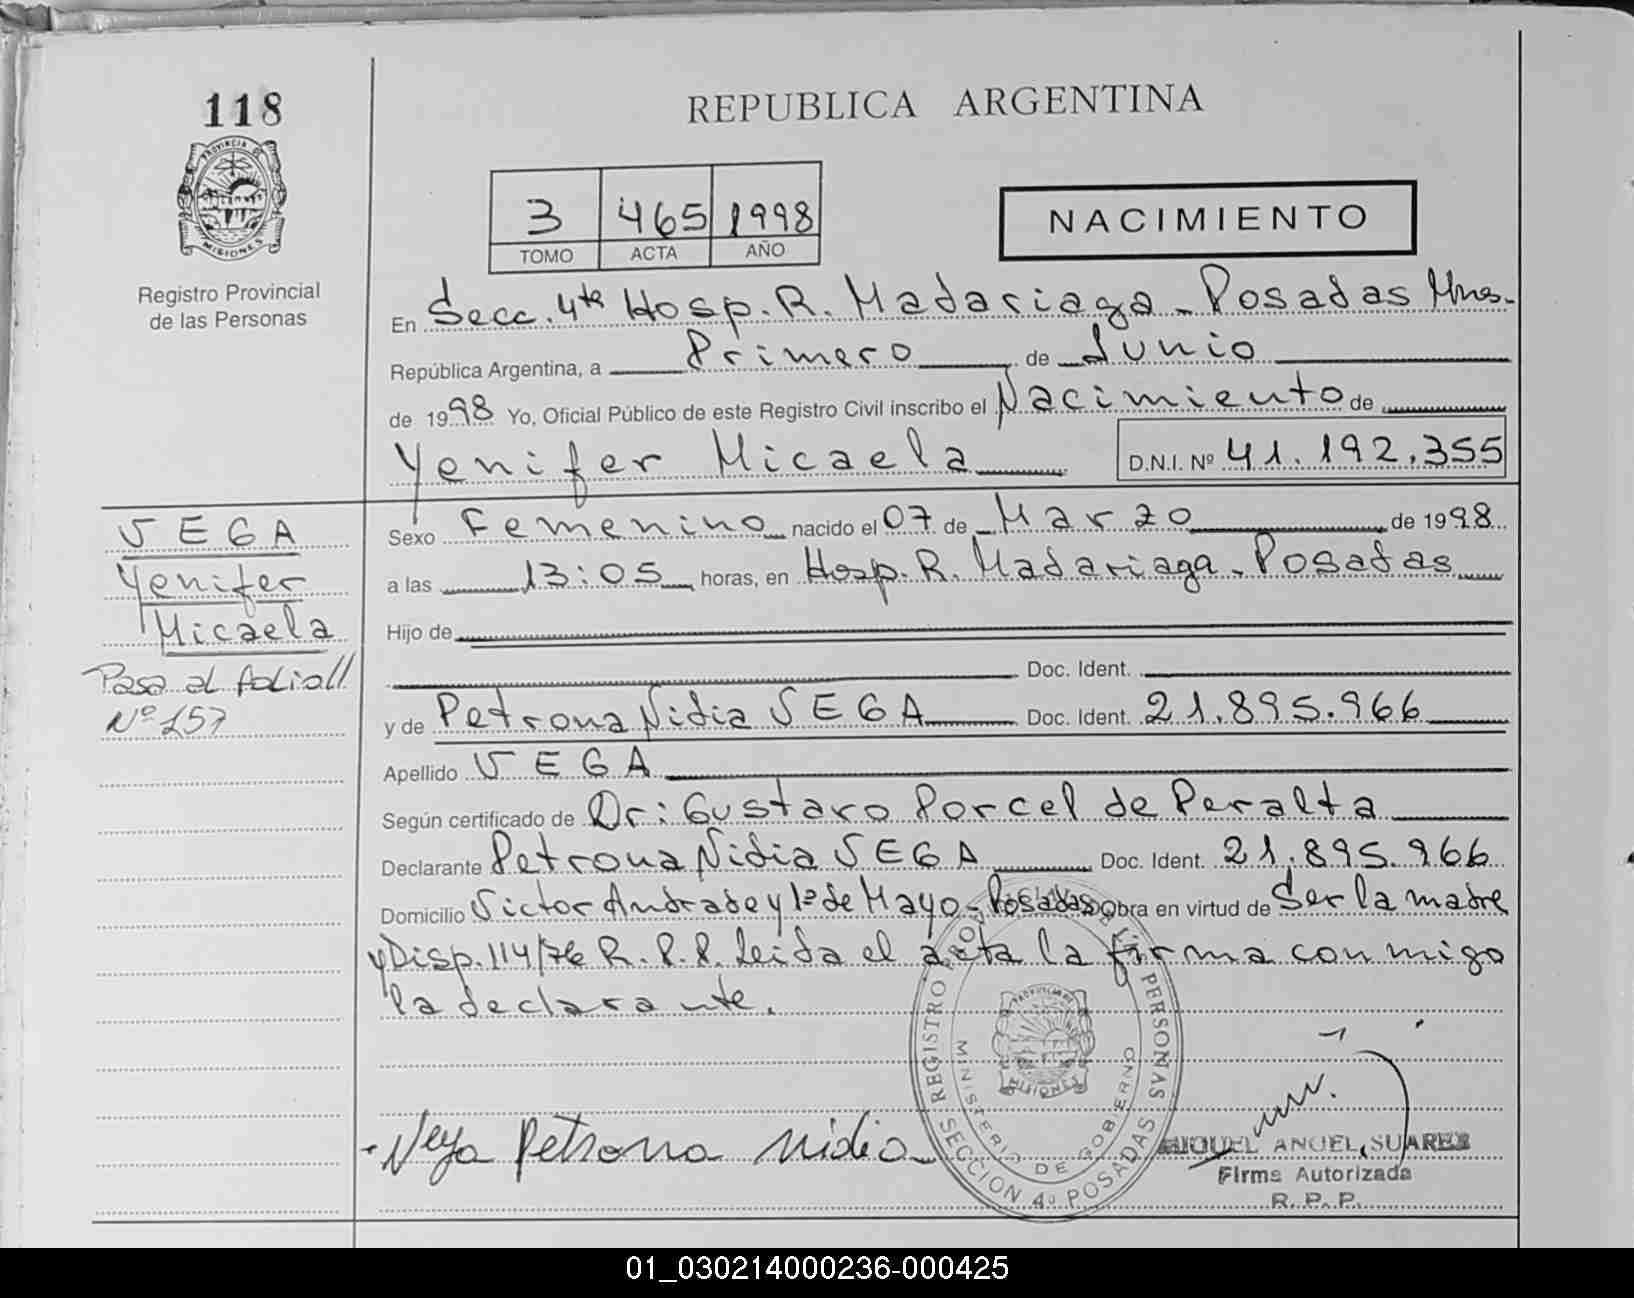 118
REPUBLICA ARGENTINA
PROVINCIA DE
MISIONES
Registro Provincial
de las Personas
3 465 1998
TOMO ACTA AÑO
NACIMIENTO
En Secc. 4ta Hosp. R. Madariaga - Posadas Mnes.
República Argentina, a Primero de Junio
de 1998 Yo, Oficial Público de este Registro Civil inscribo el Nacimiento de
Yenifer Micaela D.N.I. Nº 41.192.355
Sexo Femenino nacido el 07 de Marzo de 1998
a las 13:05 horas, en Hosp. R. Madariaga - Posadas
Hijo de
Doc. Ident.
y de Petrona Nidia VEGA Doc. Ident. 21.895.966
Apellido VEGA
Según certificado de Dr: Gustavo Porcel de Peralta
Declarante Petrona Nidia VEGA Doc. Ident. 21.895.966
Domicilio Victor Andrade y 1º de Mayo - Posadas Obra en virtud de Ser la madre
y Disp. 114/76 R.P.P. Leida el acta la firma conmigo
la declarante.
VEGA
Yenifer
Micaela
Pasa al folio
Nº 157
Petrona Nidia
REGISTRO PERSONAS
MINISTERIO DE GOBIERNO
MISIONES
SECCION 4º POSADAS
MIGUEL ANGEL SUAREZ
Firma Autorizada
R. P. P.
01_030214000236-000425